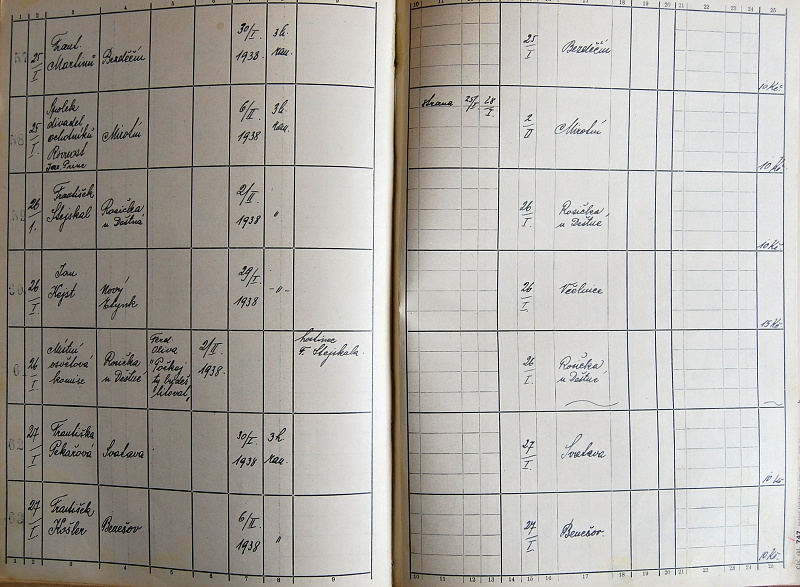 1 2 3 4 5 6 7 8 9
57 25/I Frant. Martinů Bezděčín 30/I 1938 3h. ran.
58 25/I Spolek divadel. ochotníků Rovnost Mirotín 6/II 1938 3h. ran.
59 26/1. František Stejskal Rosička u Deštné 2/II 1938 "
60 26/I Jan Nový 29/I 1938 -"-
61 26/I Místní osvětová komise Rosička u Deštné Ferd. Oliva "Počkej ty budeš litovat" 2/II 1938. hostinec F. Stejskala.
62 27/I Františka Pekařová Svatava 30/I. 1938 3h. ran.
63 27/I František Košler Benešov 6/II. 1938 "
10 11 12 13 14 15 16 17 18 19 20 21 22 23 24 25
25/I Bezděčín 10 Kč
strana 28/I. 2/II Mirotín 10 Kč
26/I. Rosička, u Deštné 10 Kč
26/I. Včelnice 15 Kč
26/I. Rosička u Deštné
27/I. Svatava 10 Kč
27/I. Benešov. 10 Kč.